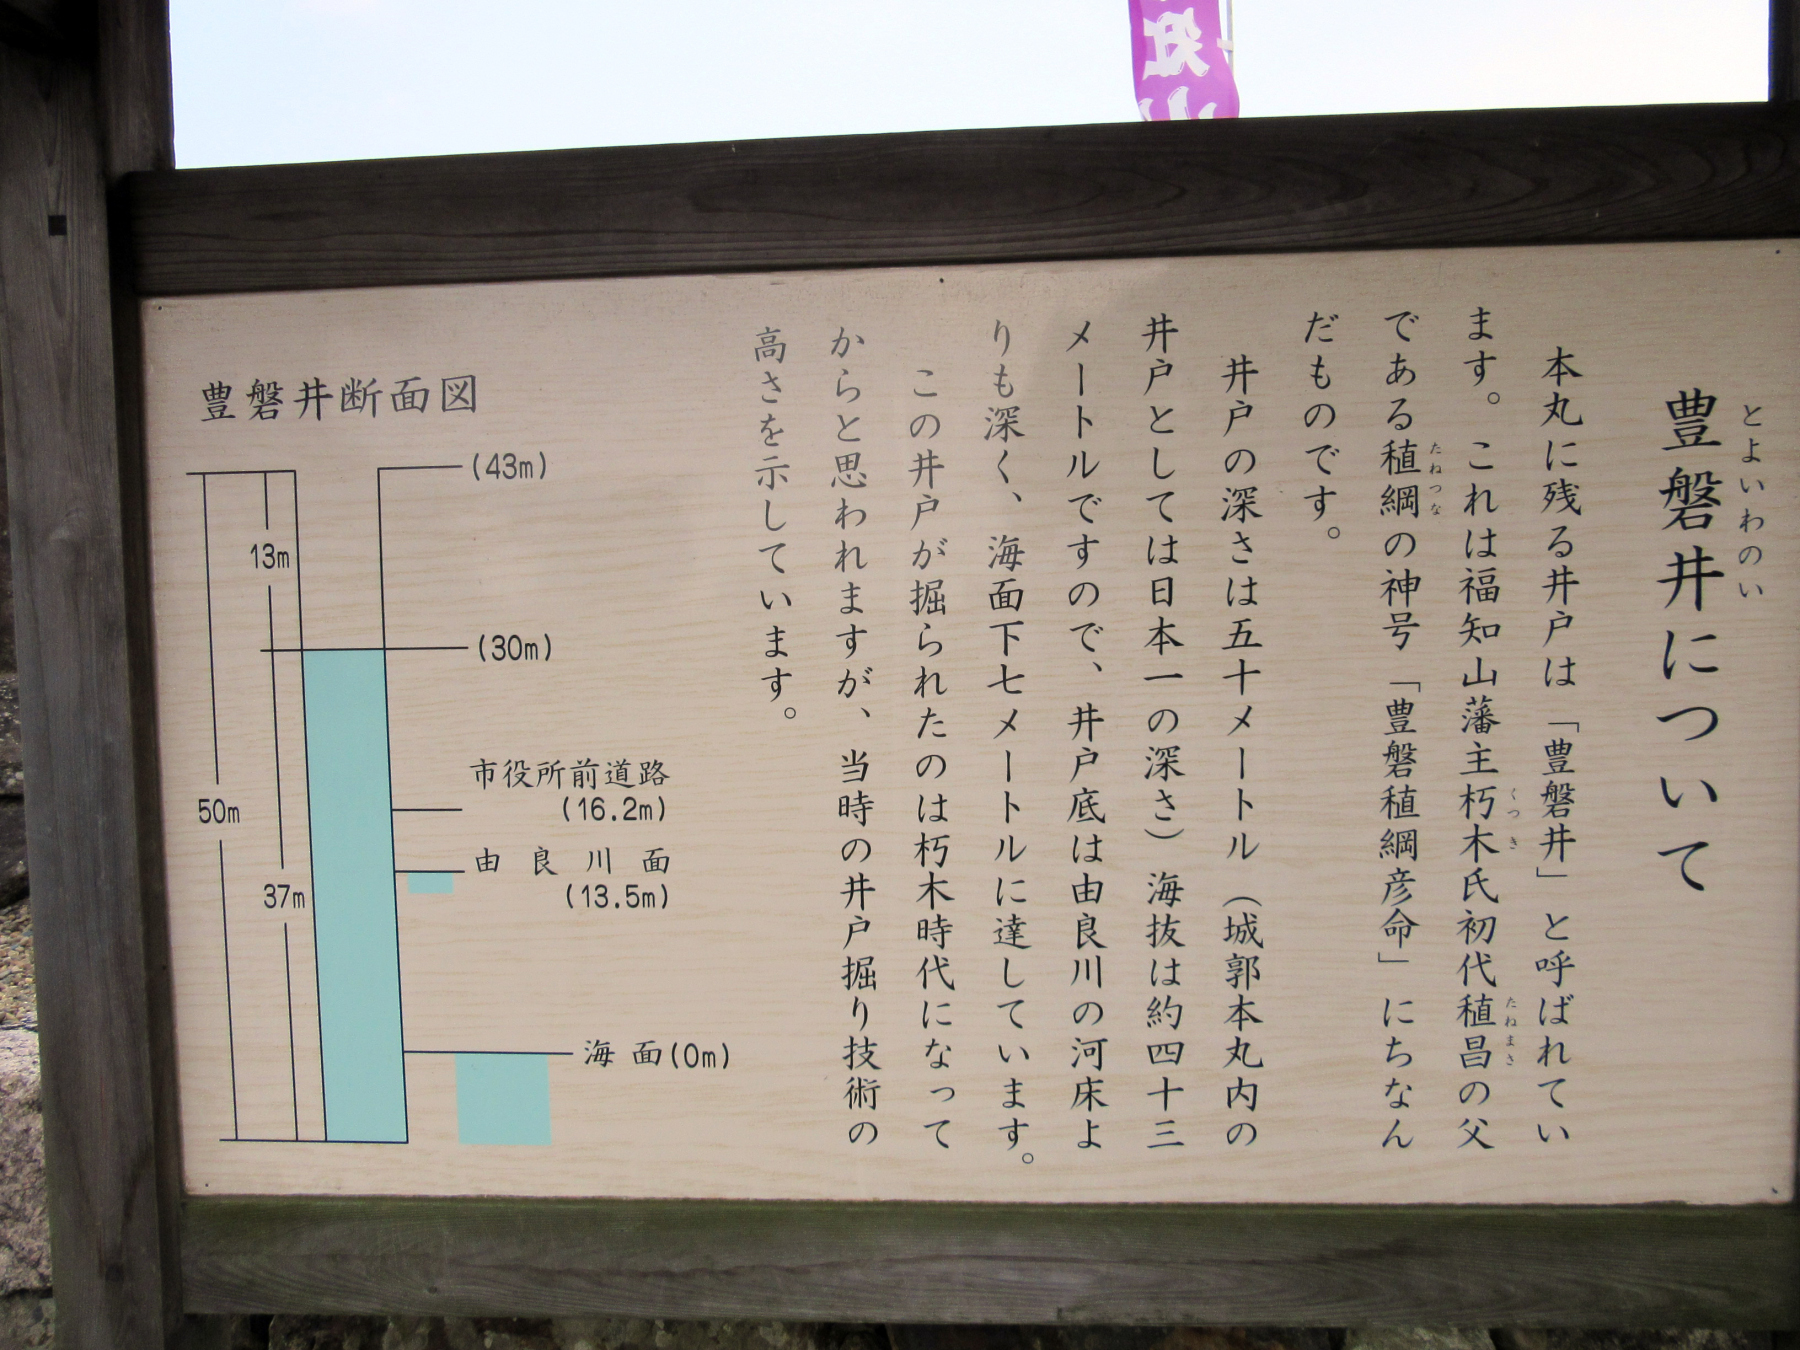 豊磐井について
とよいわのい
本丸に残る井戸は「豊磐井」と呼ばれてい
ます。これは福知山藩主朽木氏初代稙昌の父
くつき
たねまさ
である稙綱の神号「豊磐稙綱彦命」にちなん
たねつな
だものです。
井戸の深さは五十メートル（城郭本丸内の
井戸としては日本一の深さ）海抜は約四十三
メートルですので、井戸底は由良川の河床よ
りも深く、海面下七メートルに達しています。
この井戸が掘られたのは朽木時代になって
からと思われますが、当時の井戸掘り技術の
高さを示しています。
豊磐井断面図
(43m)
13m
(30m)
市役所前道路
(16.2m)
50m
由良川面
(13.5m)
37m
海面(0m)